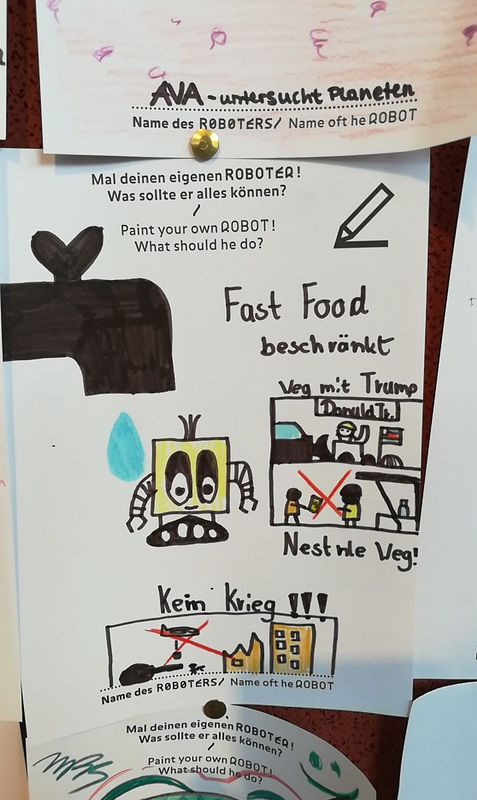 AVA - untersucht Planeten
Name des ROBOTERS/ Name oft he ROBOT
Mal deinen eigenen ROBOTER!
Was sollte er alles können?
/
Paint your own ROBOT!
What should he do?
Fast Food
beschränkt
Veg mit Trump
Donuld Tr.
Nestnle Veg!
Kein Krieg !!!
Name des ROBOTERS/ Name oft he ROBOT
Mal deinen eigenen ROBOTER!
Was sollte er alles können?
/
Paint your own ROBOT!
What should he do?